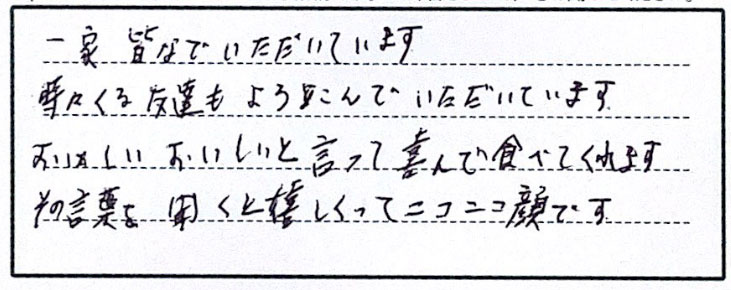 一家皆なでいただいています
時々くる友達もよろこんでいただいています
おいしいおいしいと言って喜んで食べてくれます
その言葉を聞くと嬉しくってニコニコ顔です